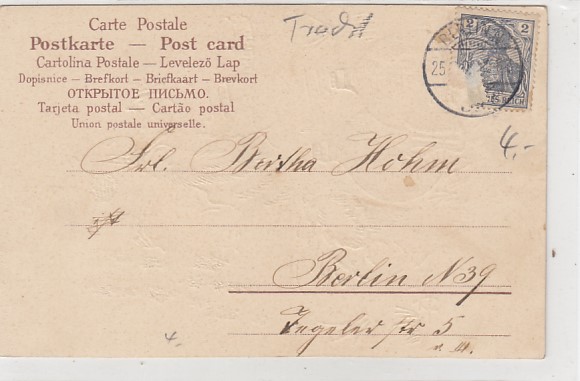 Carte Postale
Postkarte — Post card
Cartolina Postale — Levelező Lap
Dopisnice — Brefkort — Briefkaart — Brevkort
ОТКРЫТОЕ ПИСЬМО.
Tarjeta postal — Cartão postal
Union postale universelle.
2 2
25
REICH
4.-
Frl. Bertha Hohm
Berlin N 39
Tegeler str 5
4.-